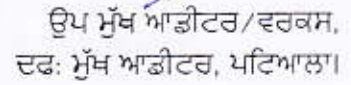 ਉਪ ਮੁੱਖ ਆਡੀਟਰ/ਵਰਕਸ,
ਦਫ: ਮੁੱਖ ਆਡੀਟਰ, ਪਟਿਆਲਾ।